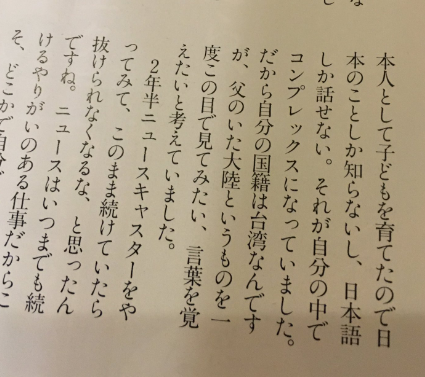 な
し
本人として子どもを育てたので日
本のことしか知らないし、日本語
しか話せない。それが自分の中で
コンプレックスになっていました。
だから自分の国籍は台湾なんです
が、父のいた大陸というものを一
度この目で見てみたい、言葉を覚
えたいと考えていました。
2年半ニュースキャスターをや
ってみて、このまま続けていたら
抜けられなくなるな、と思ったん
ですね。ニュースはいつまでも続
けるやりがいのある仕事だからこ
そ、どこかで自分で